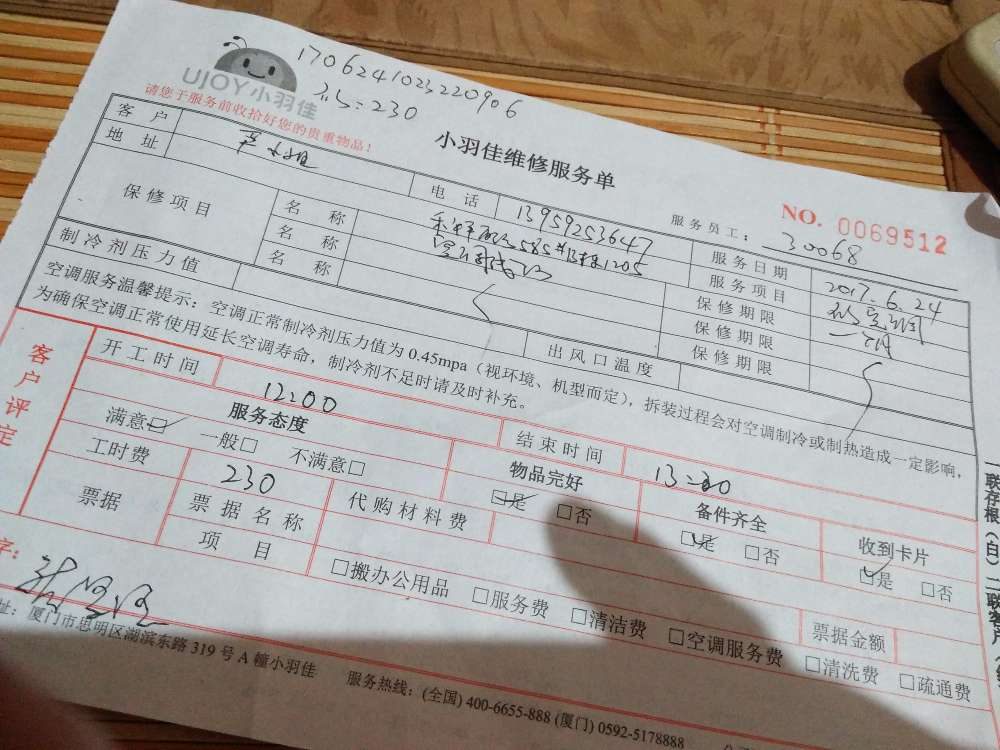 1706241023220906
UJOY小羽佳
230
请您于服务前收拾好您的贵重物品！
小羽佳维修服务单
NO. 0069512
服务员工：30068
客户 小姐 电话 13959253647 服务日期 2017.6.24
地址 585 1205 服务项目
保修项目 名称 保修期限
名称 保修期限
名称 保修期限
制冷剂压力值 出风口温度
空调服务温馨提示：空调正常制冷剂压力值为 0.45mpa（视环境、机型而定），拆装过程会对空调制冷或制热造成一定影响，
为确保空调正常使用延长空调寿命，制冷剂不足时请及时补充。
客户评定
开工时间 12:00 结束时间 13:30
服务态度 物品完好 备件齐全 收到卡片
满意□ 一般□ 不满意□ □是 □否 □是 □否 □是 □否
工时费 230 代购材料费
票据 票据名称 票据金额
项目 □搬办公用品 □服务费 □清洁费 □空调服务费 □清洗费 □疏通费
字：
址：厦门市思明区湖滨东路 319 号 A 幢小羽佳
服务热线：(全国) 400-6655-888 (厦门) 0592-5178888
一联存根（白）二联客户